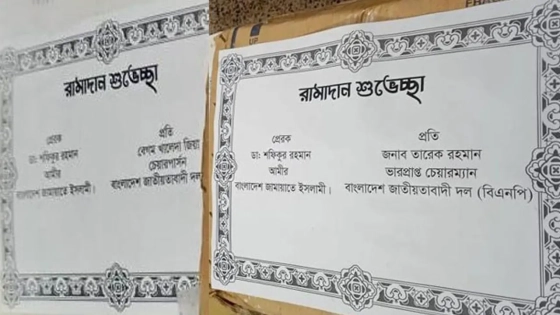 রামাদান শুভেচ্ছা
প্রেরক
ডাঃ শফিকুর রহমান
আমীর
বাংলাদেশ জামায়াতে ইসলামী।
প্রতি
বেগম খালেদা জিয়া
চেয়ারপার্সন
বাংলাদেশ জাতীয়তাবাদী দল
UP
রামাদান শুভেচ্ছা
প্রেরক
ডাঃ শফিকুর রহমান
আমীর
বাংলাদেশ জামায়াতে ইসলামী।
প্রতি
জনাব তারেক রহমান
ভারপ্রাপ্ত চেয়ারম্যান
বাংলাদেশ জাতীয়তাবাদী দল (বিএনপি)